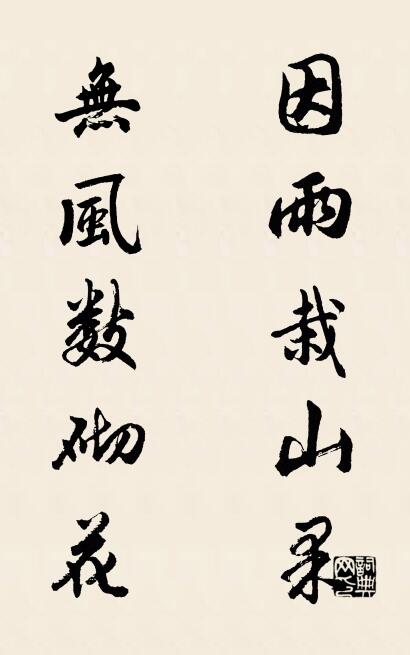 因雨栽山果
無風数砌花
詞典